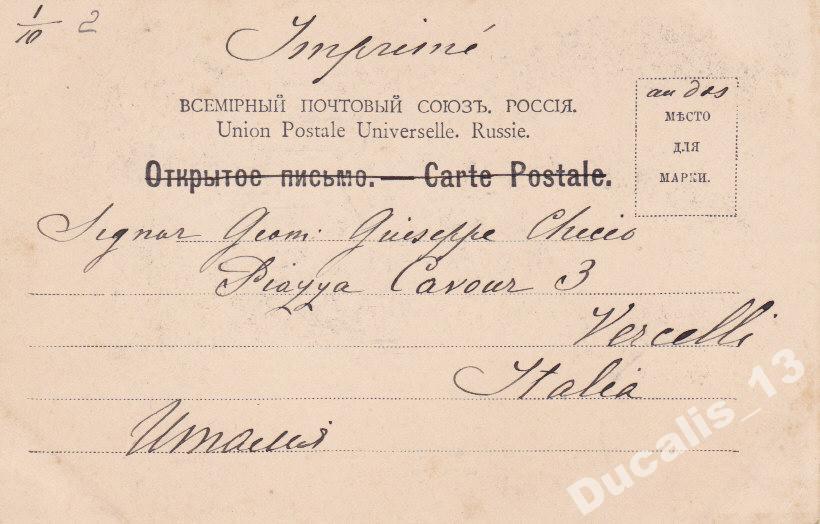 1/10 2
Imprimé
ВСЕМІРНЫЙ ПОЧТОВЫЙ СОЮЗЪ. РОССІЯ.
Union Postale Universelle. Russie.
Открытое письмо. — Carte Postale.
au dos
МѢСТО
ДЛЯ
МАРКИ.
Signor Geom. Giuseppe Checco
Piazza Cavour 3
Vercelli
Italia
Италия
Ducalis_13